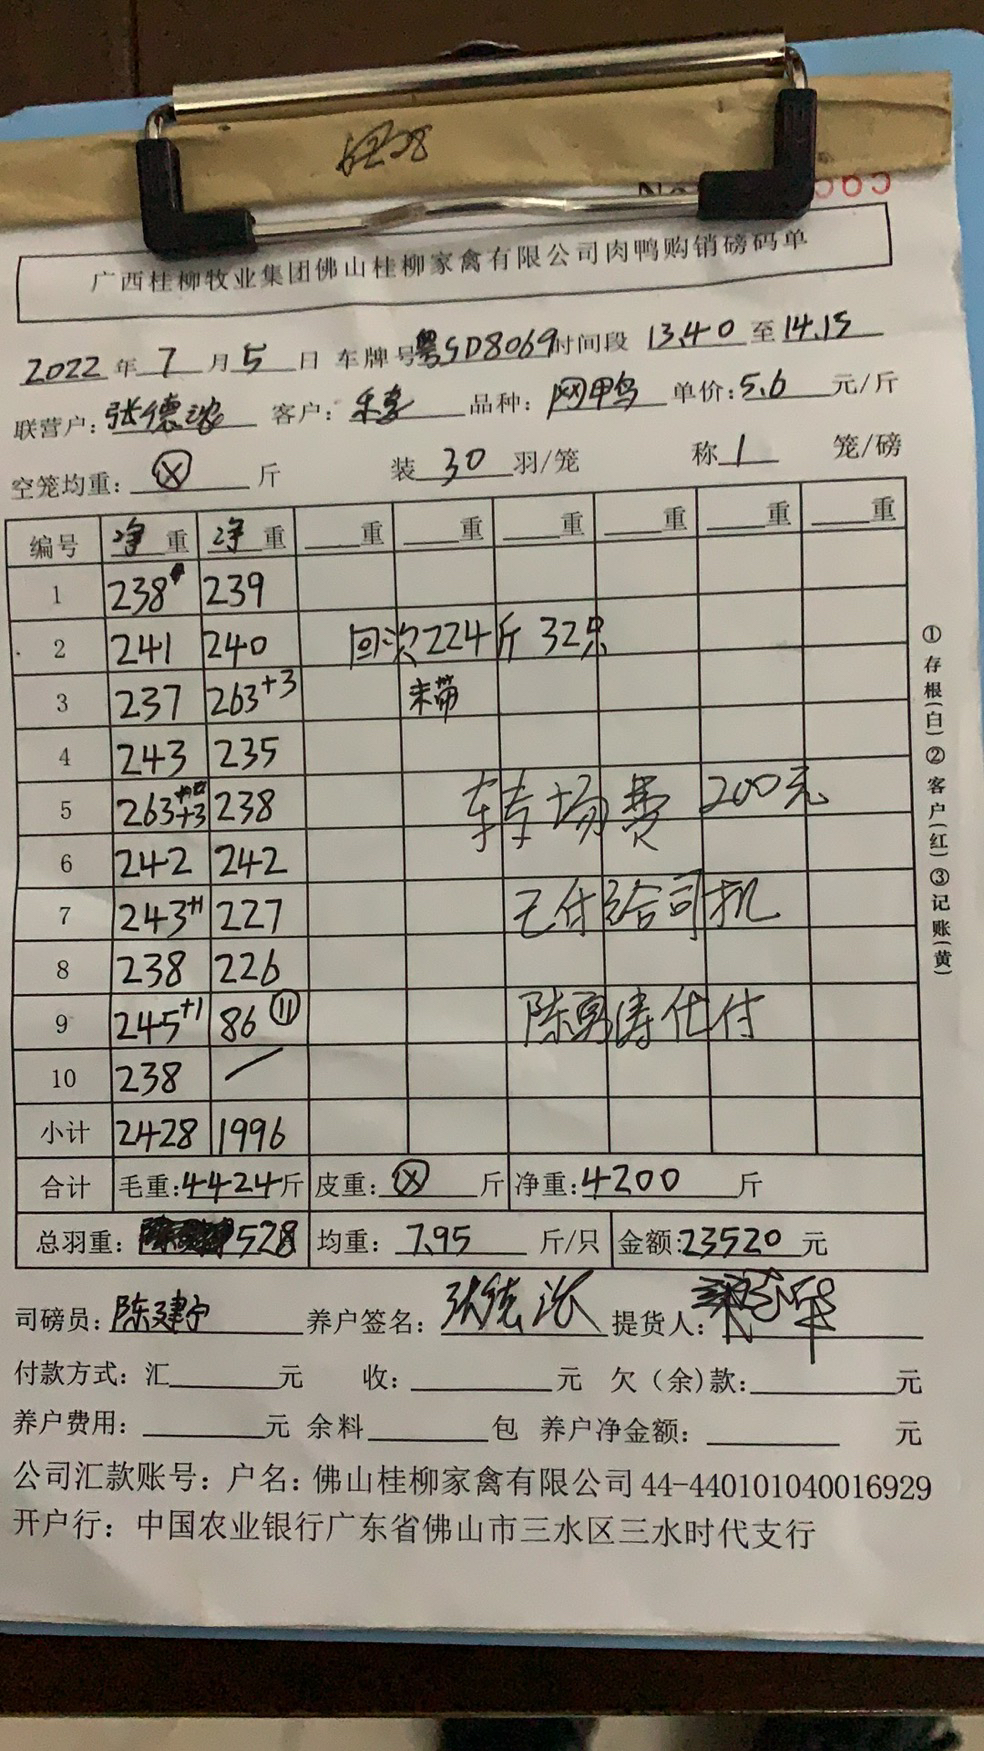 565
广西桂柳牧业集团佛山桂柳家禽有限公司肉鸭购销磅码单
2022年7月5日 车牌号粤SD8069时间段 13.40至14.15
联营户:张德浓 客户: 品种:网鸭 单价:5.6元/斤
空笼均重:ⓧ斤 装30羽/笼 称1笼/磅
编号 净重 净重 重 重 重 重 重 重
1 238 239
2 241 240 回次224斤 32只
3 237 263+3 未带
4 243 235
5 263+3 238 转场费 200元
6 242 242
7 243+1 227 已付给司机
8 238 226
9 245+1 86⑪ 陈勇涛代付
10 238 /
小计 2428 1996
合计 毛重:4424斤 皮重:ⓧ斤 净重:4200斤
总羽重:528 均重:7.95斤/只 金额:23520元
司磅员:陈建宁 养户签名:张德浓 提货人:
付款方式:汇 元 收: 元 欠(余)款: 元
养户费用: 元 余料 包 养户净金额: 元
公司汇款账号:户名:佛山桂柳家禽有限公司44-440101040016929
开户行:中国农业银行广东省佛山市三水区三水时代支行
①存根(白)②客户(红)③记账(黄)